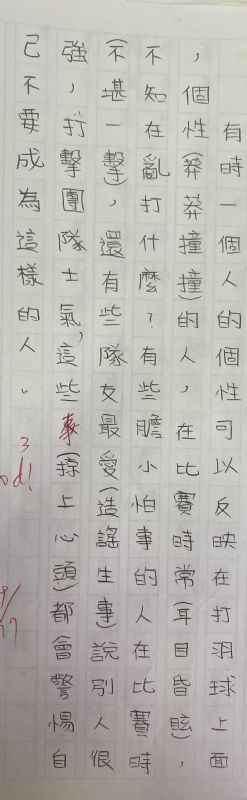 有時一個人的個性可以反映在打羽球上面
，個性（莽莽撞撞）的人，在比賽時常（耳目昏眩），
不知在亂打什麼？有些膽小怕事的人在比賽時
（不堪一擊），還有些隊友最愛（造謠生事）說別人很
強，打擊團隊士氣，這些事（揼上心頭）都會警惕自
己不要成為這樣的人。
3
od!